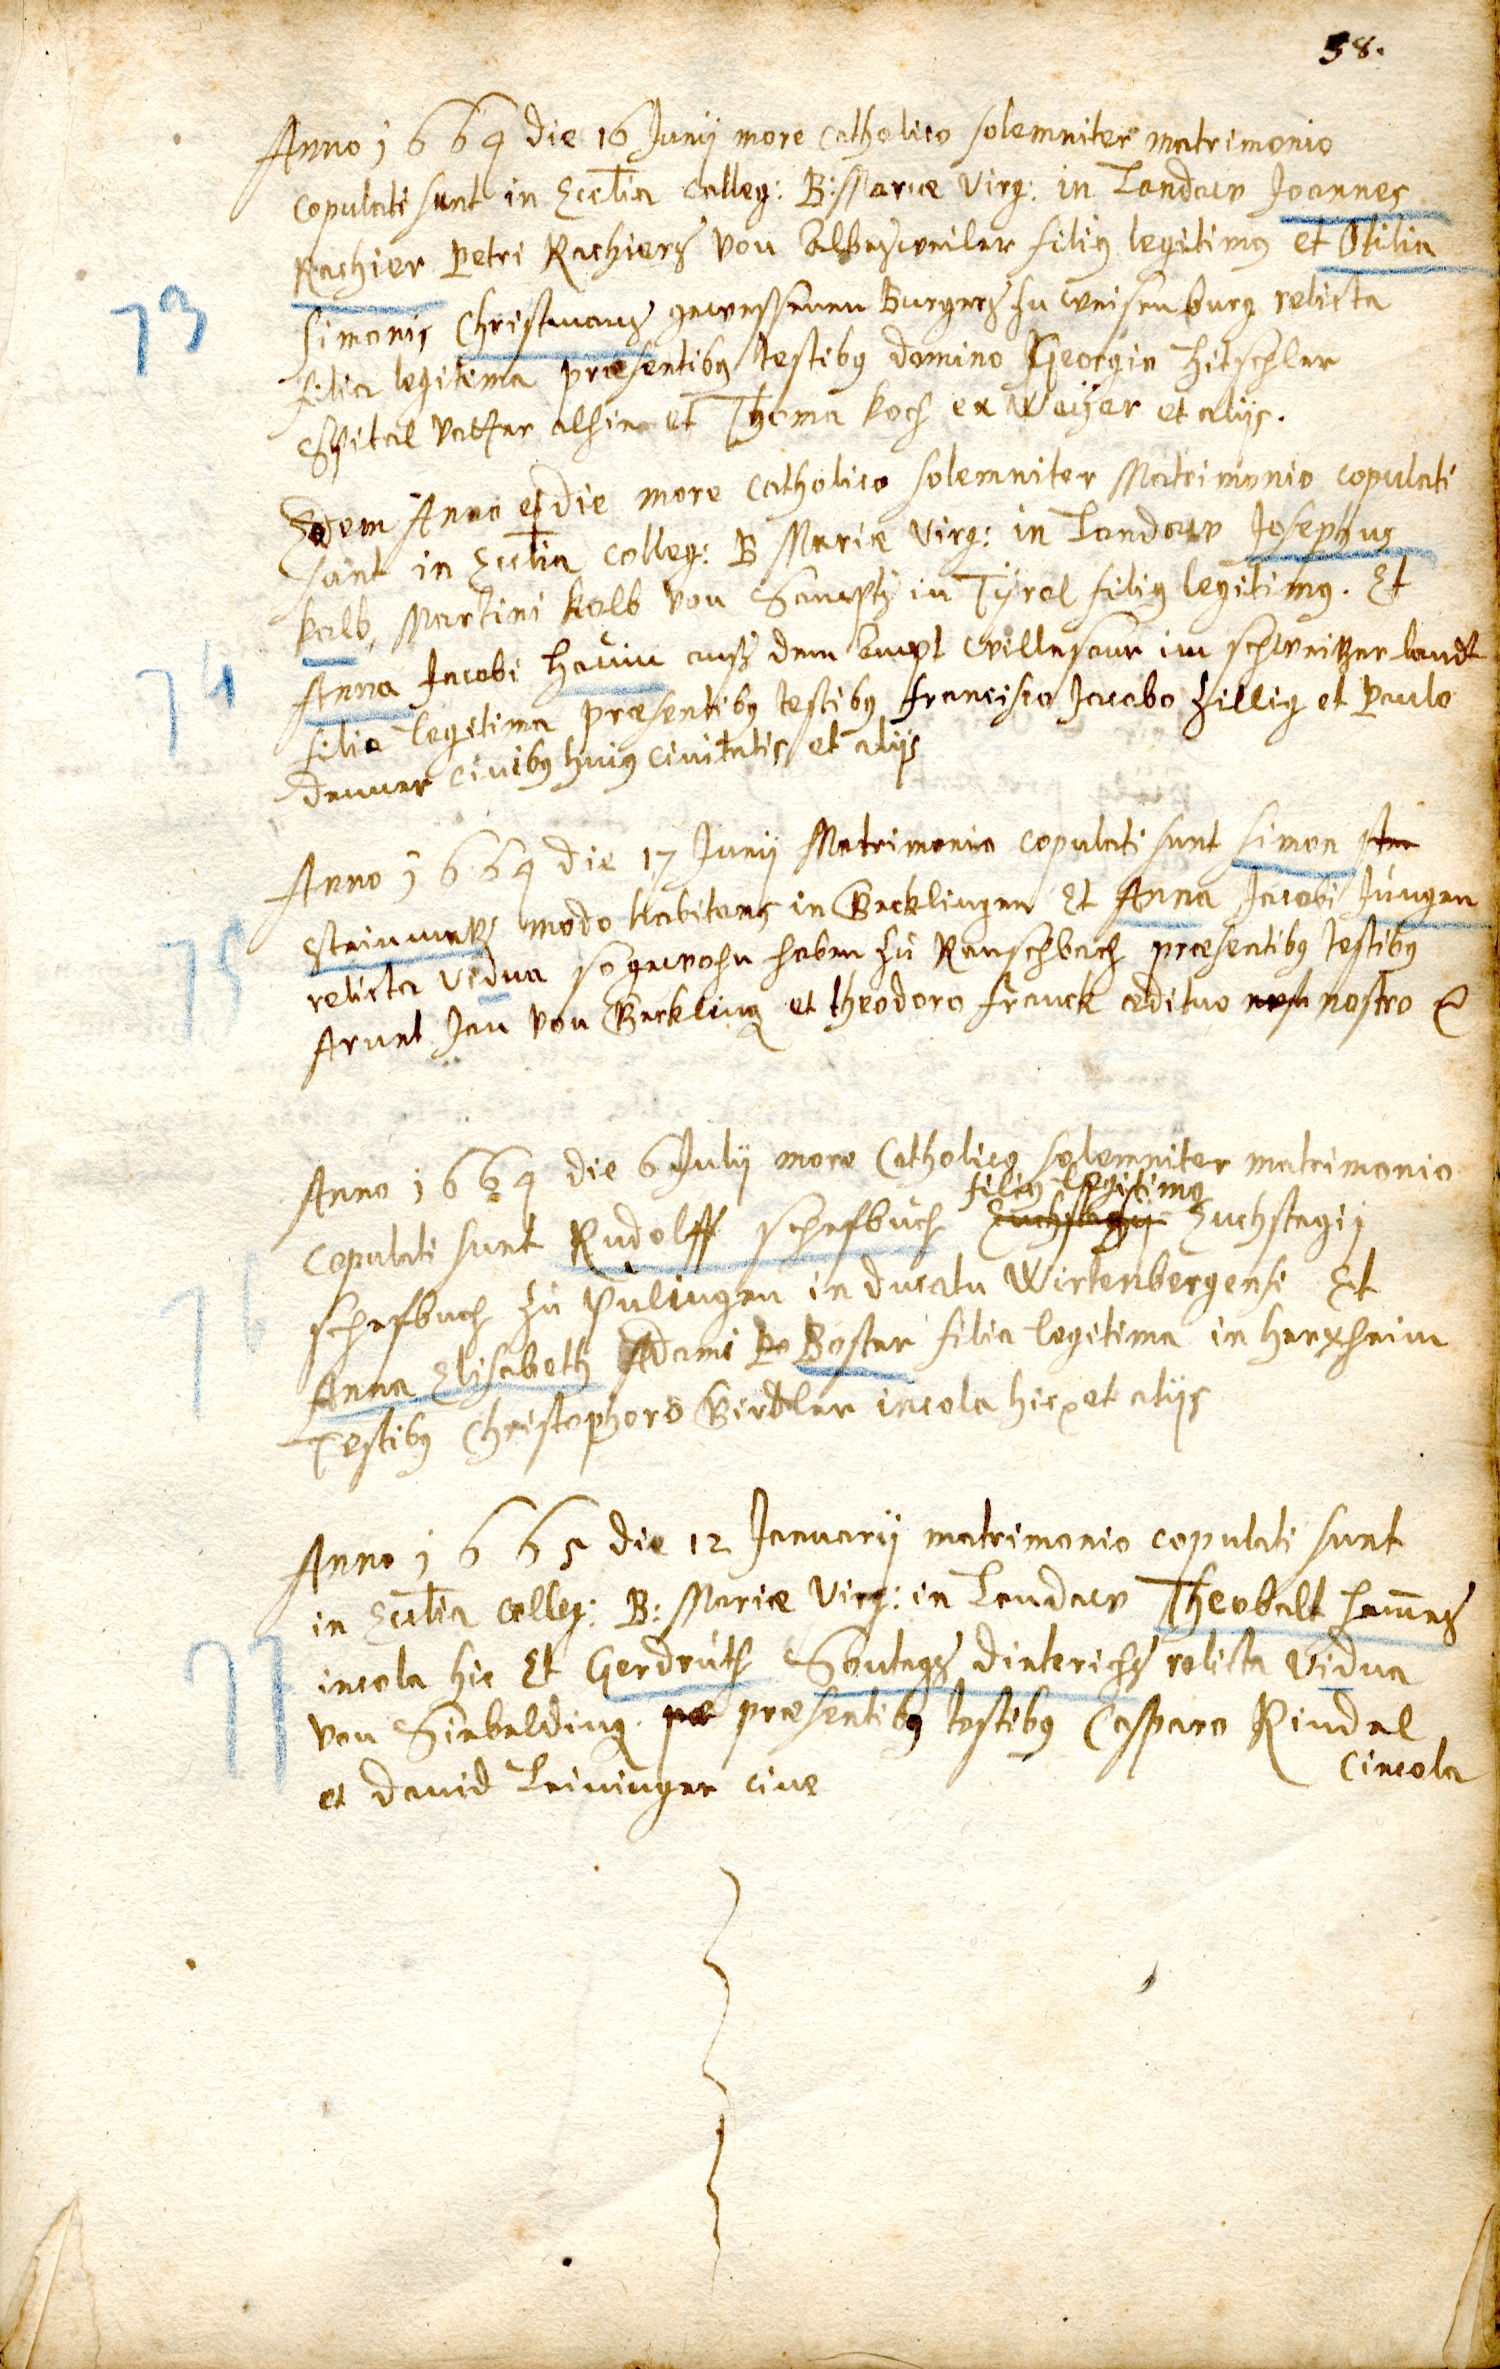 38.
Anno 1664 die 16 Junij more catholico solemniter matrimonio
copulati sunt in Eccl̄ia Colleg: B: Mariæ Virg: in Landaw Joannes
Rachier Petri Rachierß von Albeßweiler filiꝰ legitimꝰ et Otilia
Simonis Christmanß gewessenen Burgerß zu Weisenburg relicta
filia legitima præsentibꝰ testibꝰ domino Georgio Hitschler
Spital vatter alhie et Thoma Koch ex Weijer et alijs.
73
Eodem Anno et die more catholico solemniter Matrimonio copulati
sunt in Eccl̄ia colleg: B Mariæ Virg: in Landaw Josephus
Kalb, Martini Kalb von in Tÿrol filiꝰ legitimꝰ. Et
Anna Jacobi Hauin auß dem ampt Willesaur im schweitzerlandt
filia legitima præsentibꝰ testibꝰ Francisco Jacobo Zillig et Paulo
Denner civibꝰ huiꝰ civitatis et alijs
74
Anno 1664 die 17 Junij Matrimonio copulati sunt Simon
Steinmetz modo habitans in Becklingen Et Anna Jacobi Jungen
relicta vidua so gewohn haben zu Ranschbach præsentibꝰ testibꝰ
Arunt Jan von Beckling et theodoro Franck ædituo nost nostro
75
Anno 1664 die 6 Julij more Catholico solemniter matrimonio
filiꝰ legitimꝰ
copulati sunt Rudolff schefbuch Euchstagij Euchstagij
schefbuch zu Pulingen in ducatu Wirtenbergensi Et
Anna Elisabeth Adami Bo Boster filia legitima in Herxheim
Testibꝰ Christophoro Birdler incola hic et alijs
76
Anno 1665 die 12 Januarij matrimonio copulati sunt
in Eccl̄ia colleg: B: Mariæ Virg: in Landaw Theobalt Ham̄eß
incola hic Et Gerdruth Sontagß dieterichß relicta vidua
von Siebelding. præ præsentibꝰ testibꝰ Casparo Rindel
incola
et David Leininger cive
77